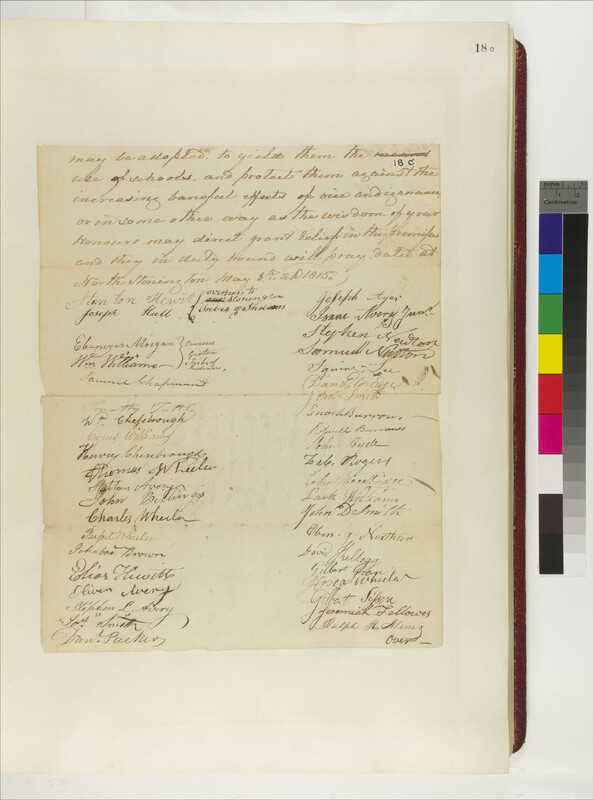 18c
may be adopted, to yield them the means
18 C
use of schools, and protect them against the
increasing baneful effects of vice and ignorance
or in some other way as the wisdom of your
honours may direct grant relief in the premises
and they in duty bound will pray, dated at
North Stonington May 8th AD 1815
Stanton Hewit
Joseph Hull
overseers to
Stonington
Tribes of Indians
Ebenezer Morgan
Wm Williams
Samuel Chapman
Overseers
Groton
Tribe of
Indians
Timothy Tuttle
Wm Chesebrough
Williams
Harvey Chesebrough
Thomas Wheeler
Avery
John Billings
Charles Wheeler
Wheeler
Ichabod Brown
Elias Hewitt
Oliver Avery
Stephen L. Avery
Jos. Smith
Danl. Packer
Joseph Ayer
Isaac Avery Junr.
Stephen
Samuel
Squire Lee
John Smith
Enoch Burrows
Roswell Burrows
John Hyde
Zebr. Rogers
Lark
John D Smith
Eben.
David Kellogg
Gilbert
Hosea Wheeler
Gilbert Sisson
Jeremiah Fellowes
Ralph R. Miner
Over
inches
1
2
Centimetres